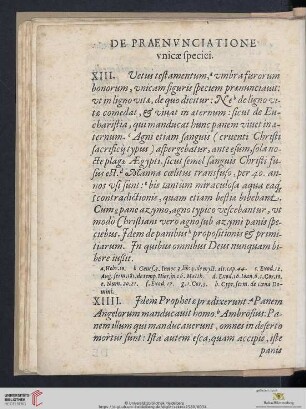 DE PRAENVNCIATIONE
vnicæ speciei.
XIII. Vetus testamentum, vmbra futurorum
bonorum, vnicam figuris speciem prænunciauit:
vt in ligno vitæ, de quo dicitur: Ne de ligno vi-
tæ comedat, & viuat in æternum: sicut de Eu-
charistia, qui manducat hunc panem viuet in æ-
ternum. Agni etiam sanguis (cruenti Christi
sacrificij typus) aspergebatur, ante esum, sola no-
cte plagæ Ægypti, sicut semel sanguis Christi fu-
sus est. Manna cœlitus transfuso, per 40. an-
nos vsi sunt: bis tantum miraculosa aqua eaq́;
contradictionis, quam etiam bestiæ bibebant.
Cum pane azymo, agno typico vescebantur, vt
modo Christiani vero agno sub azymi panis spe-
ciebus. Idem de panibus propositionis & primi-
tiarum. In quibus omnibus Deus nunquam bi-
bere iussit.
XIIII. Idem Prophetæ prædixerunt: Panem
Angelorum manducauit homo. Ambrosius: Pa-
nem illum qui manducauerunt, omnes in deserto
mortui sunt: Ista autem esca, quam accipis, iste
panis
UNIVERSITÄTS-
BIBLIOTHEK
HEIDELBERG